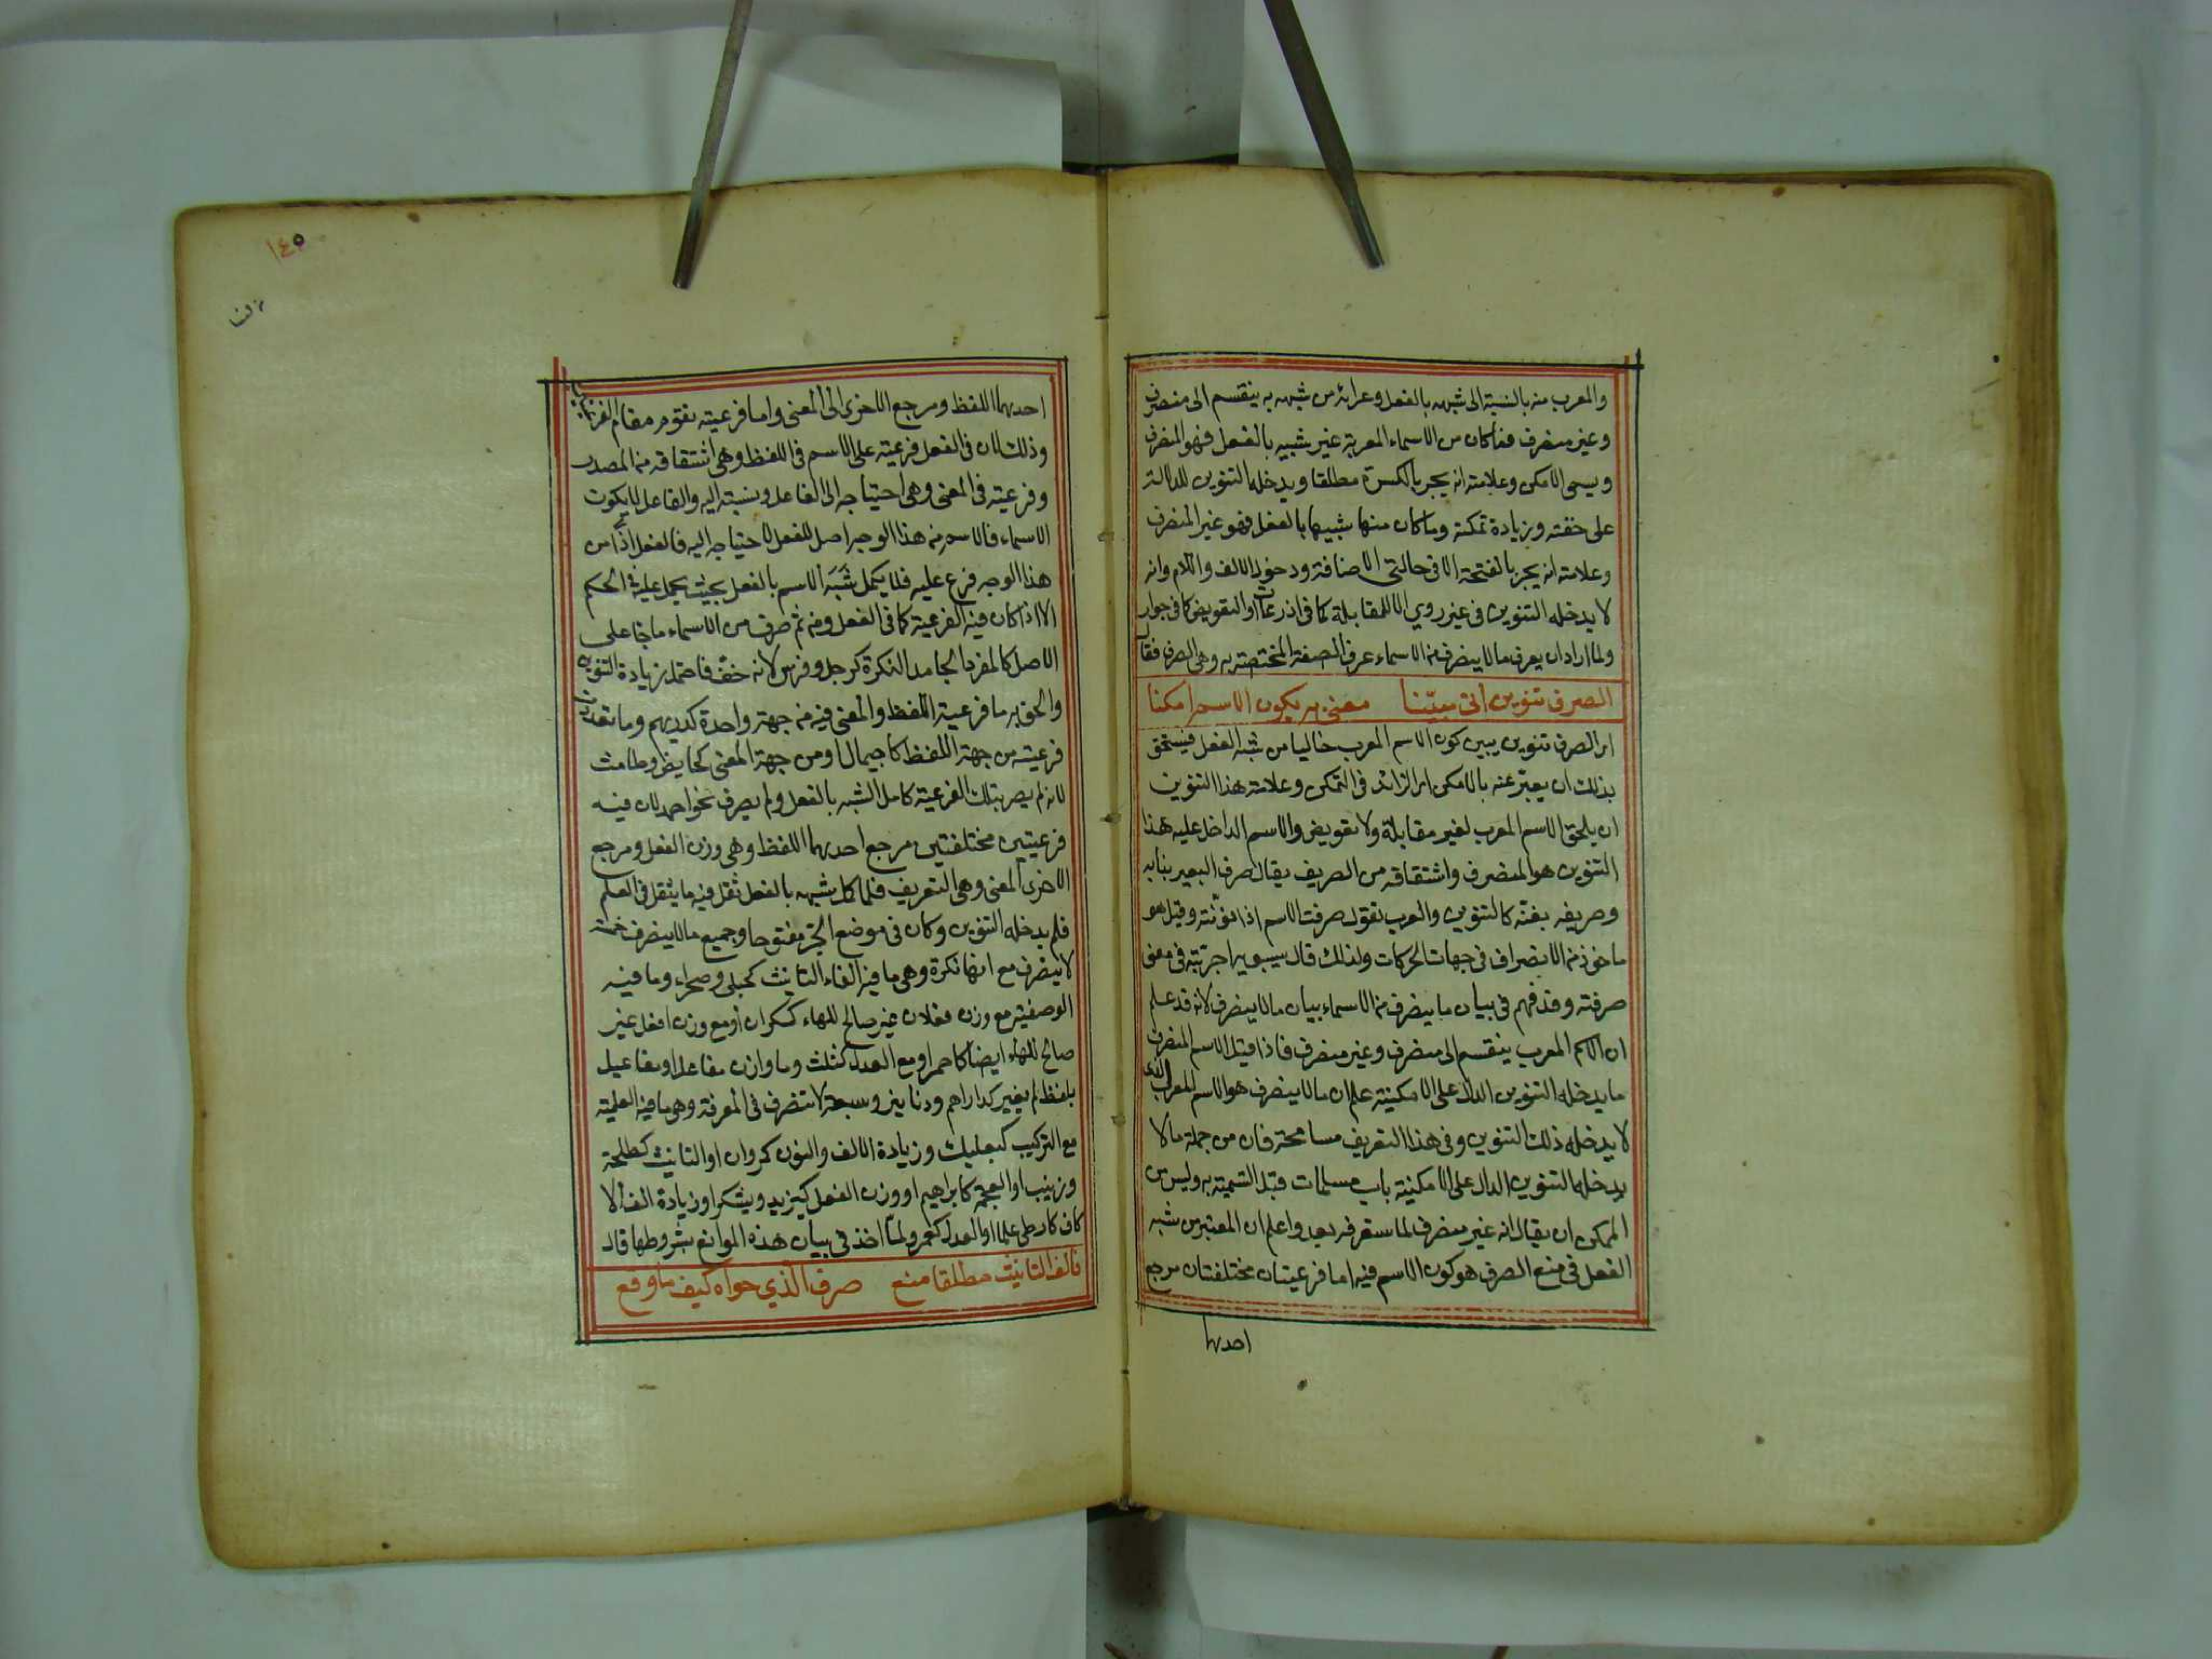 والمعرب منه بالنسبة الى شبهه بالفعل وعرائه من شبهه به ينقسم الى منصرف
وغير منصرف فما كان من الاسماء المعربة غير شبيه بالفعل فهو المنصرف
ويسمى الامكن وعلامته انه يجر بالكسرة مطلقا ويدخله التنوين للدلالة
على خفته وزيادة تمكنه وما كان منها شبيها بالفعل فهو غير المنصرف
وعلامته انه يجر بالفتحة الا في حالتي الاضافة ودخول الالف واللام وانه
لا يدخله التنوين في غير روي الا للمقابلة كما في اذرعات او التعويض كما في جوار
ولما اراد ان يعرف ما لا ينصرف من الاسماء عرف الصفة المختصة به وهي الصرف فقال
الصرف تنوين اتى مبيّنا معنى به يكون الاسم امكنا
اي الصرف تنوين يبين كون الاسم المعرب خاليا من شبه الفعل فيستحق
بذلك ان يعبّر عنه بالامكن اي الزائد في التمكن وعلامة هذا التنوين
ان يلحق الاسم المعرب لغير مقابلة ولا تعويض والاسم الداخل عليه هذا
التنوين هو المنصرف واشتقاقه من الصريف يقال صرف البعير بنابه
وصريفه بغنّة كالتنوين والعرب تقول صرفت الاسم اذا نوّنته وقيل هو
ماخوذ من الانصراف في جهات الحركات ولذلك قال سيبويه اجريته في معنى
صرفته وقد فهم في بيان ما ينصرف من الاسماء بيان ما لا ينصرف لانه قد علم
ان الاسم المعرب ينقسم الى منصرف وغير منصرف فاذا قيل الاسم المنصرف
ما يدخله التنوين الدال على الامكنية علم ان ما لا ينصرف هو الاسم المعرب الذي
لا يدخله ذلك التنوين وفي هذا التعريف مسامحة فان من جملة ما لا
يدخله التنوين الدال على الامكنية باب مسلمات قبل التسمية به وليس من
الممكن ان يقال انه غير منصرف لما ستعرفه بعد واعلم ان المعتبر من شبه
الفعل في منع الصرف هو كون الاسم فيه اما فرعيتان مختلفتان مرجع
احديهما
١٤٥
احديهما اللفظ ومرجع الاخرى الى المعنى واما فرعيته تقوم مقام الفرعيتين
وذلك لان في الفعل فرعية على الاسم في اللفظ وهي اشتقاقه من المصدر
وفرعية في المعنى وهي احتياجه الى الفاعل ونسبته اليه والفاعل لا يكون
الاسماء فالاسم من هذا الوجه اصل للفعل لاحتياجه اليه فالفعل اذا من
هذا الوجه فرع عليه فلا يكمل شَبَه الاسم بالفعل بحيث يحمل عليه في الحكم
الا اذا كان فيه الفرعية كما في الفعل ومن ثم صرف من الاسماء ما جا على
الاصل كالمفرد الجامد النكرة كرجل وفرس لانه خفّ فاحتمل زيادة التنوين
والحق به ما فرعية اللفظ والمعنى فيه من جهة واحدة كدريهم وما تعددت
فرعيته من جهة اللفظ كاجيمال او من جهة المعنى كحايض وطامث
لانه لم يصر بتلك الفرعية كامل الشبه بالفعل ولم يصرف نحو احمد لان فيه
فرعيتين مختلفتين مرجع احديهما اللفظ وهي وزن الفعل ومرجع
الاخرى المعنى وهي التعريف فلما كمل شبهه بالفعل ثقل فيه ما يثقل في الفعل
فلم يدخله التنوين وكان في موضع الجرّ مفتوحا وجميع ما لا ينصرف خمسة
لا ينصرف مع انها نكرة وهي ما فيه الفاء التانيث كحبلى وصحراء وما فيه
الوصفية مع وزن فعلان غير صالح للهاء كسكران او مع وزن افعل غير
صالح للهاء ايضا كاحمر او مع العدل كثلث وما وازن مفاعل او مفاعيل
بلفظ لم يغير كداراهم ودنانير وسبعة لا تنصرف في المعرفة وهي ما فيه العلمية
مع التركيب كبعلبك وزيادة الالف والنون كمروان او التانيث كطلحة
وزينب او العجمة كابراهيم او وزن الفعل كيزيد ويشكر او زيادة الف الا
كاف كارطى علما او العدل كعمر ولمّا اخذ في بيان هذه الموانع بشروطها قال
فالف التانيث مطلقا منع صرف الذي حواه كيف ما وقع